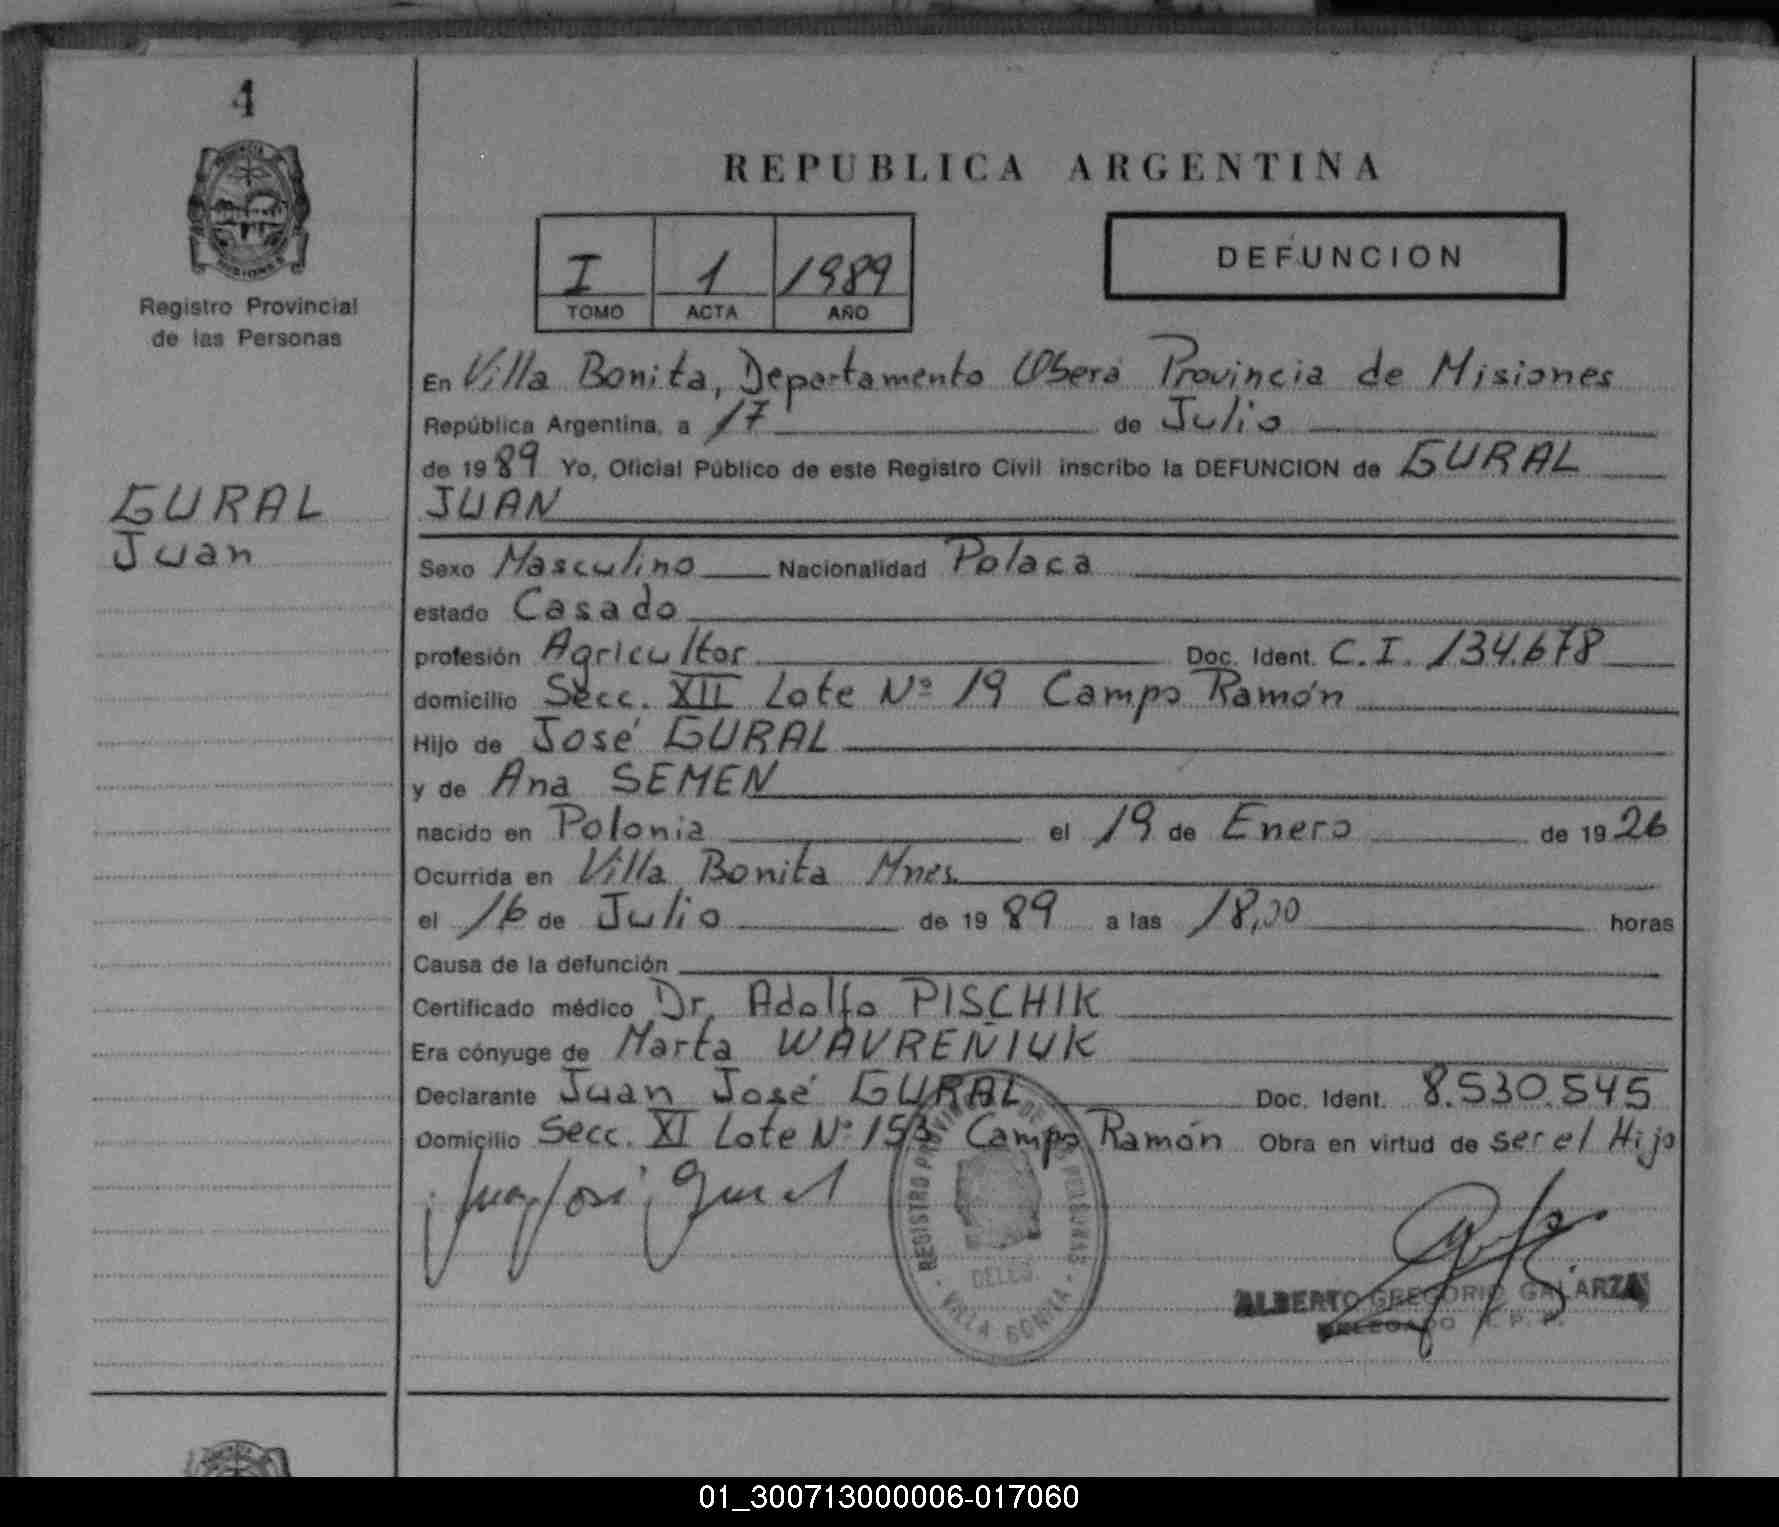 4
PROVINCIA
MISIONES
Registro Provincial
de las Personas
GURAL
Juan
REPUBLICA ARGENTINA
I 1 1989
TOMO ACTA AÑO
DEFUNCION
En Villa Bonita, Departamento Oberá Provincia de Misiones
República Argentina, a 17 de Julio
de 1989 Yo, Oficial Público de este Registro Civil inscribo la DEFUNCION de GURAL
JUAN
Sexo Masculino Nacionalidad Polaca
estado Casado
profesión Agricultor Doc. Ident. C.I. 134.678
domicilio Secc. XII Lote Nº 19 Campo Ramón
Hijo de José GURAL
y de Ana SEMEN
nacido en Polonia el 19 de Enero de 1926
Ocurrida en Villa Bonita Mnes.
el 16 de Julio de 1989 a las 18,00 horas
Causa de la defunción
Certificado médico Dr. Adolfo PISCHIK
Era cónyuge de Marta WAVRENIUK
Declarante Juan José GURAL Doc. Ident. 8.530.545
Domicilio Secc. XI Lote Nº 153 Campo Ramón Obra en virtud de ser el Hijo
Juan José Gural
REGISTRO PROVINCIAL DE LAS PERSONAS
DELEG.
VILLA BONITA
ALBERTO GREGORIO GALARZA
DELEGADO R. P. P.
01_300713000006-017060